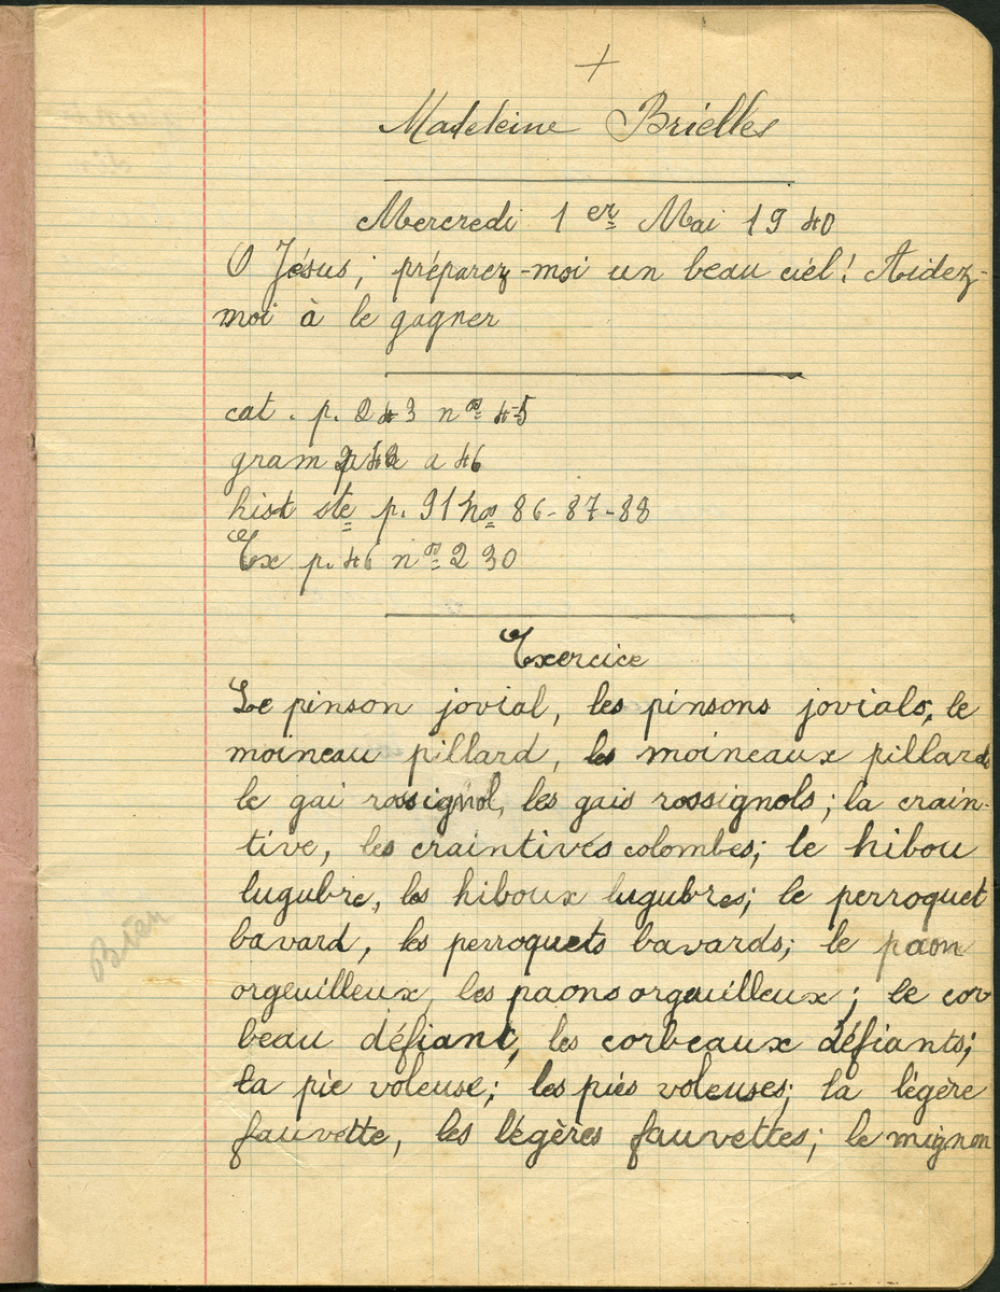 +
Madeleine Brielles
Mercredi 1er Mai 1940
O Jésus, préparez-moi un beau ciel! Aidez-
moi à le gagner
cat. p. 243 nos 45
gram a 46
hist ste p. 91 nos 86-87-88
Ex p. 46 nos 230
Exercice
Le pinson jovial, les pinsons jovials, le
moineau pillard, les moineaux pillards
le gai rossignol, les gais rossignols; la crain-
tive, les craintives colombes; le hibou
lugubre, les hiboux lugubres; le perroquet
bavard, les perroquets bavards; le paon
orgeuilleux, les paons orgeuilleux; le cor
beau défiant, les corbeaux défiants;
la pie voleuse; les pies voleuses; la légère
fauvette, les légères fauvettes; le mignon
Bien